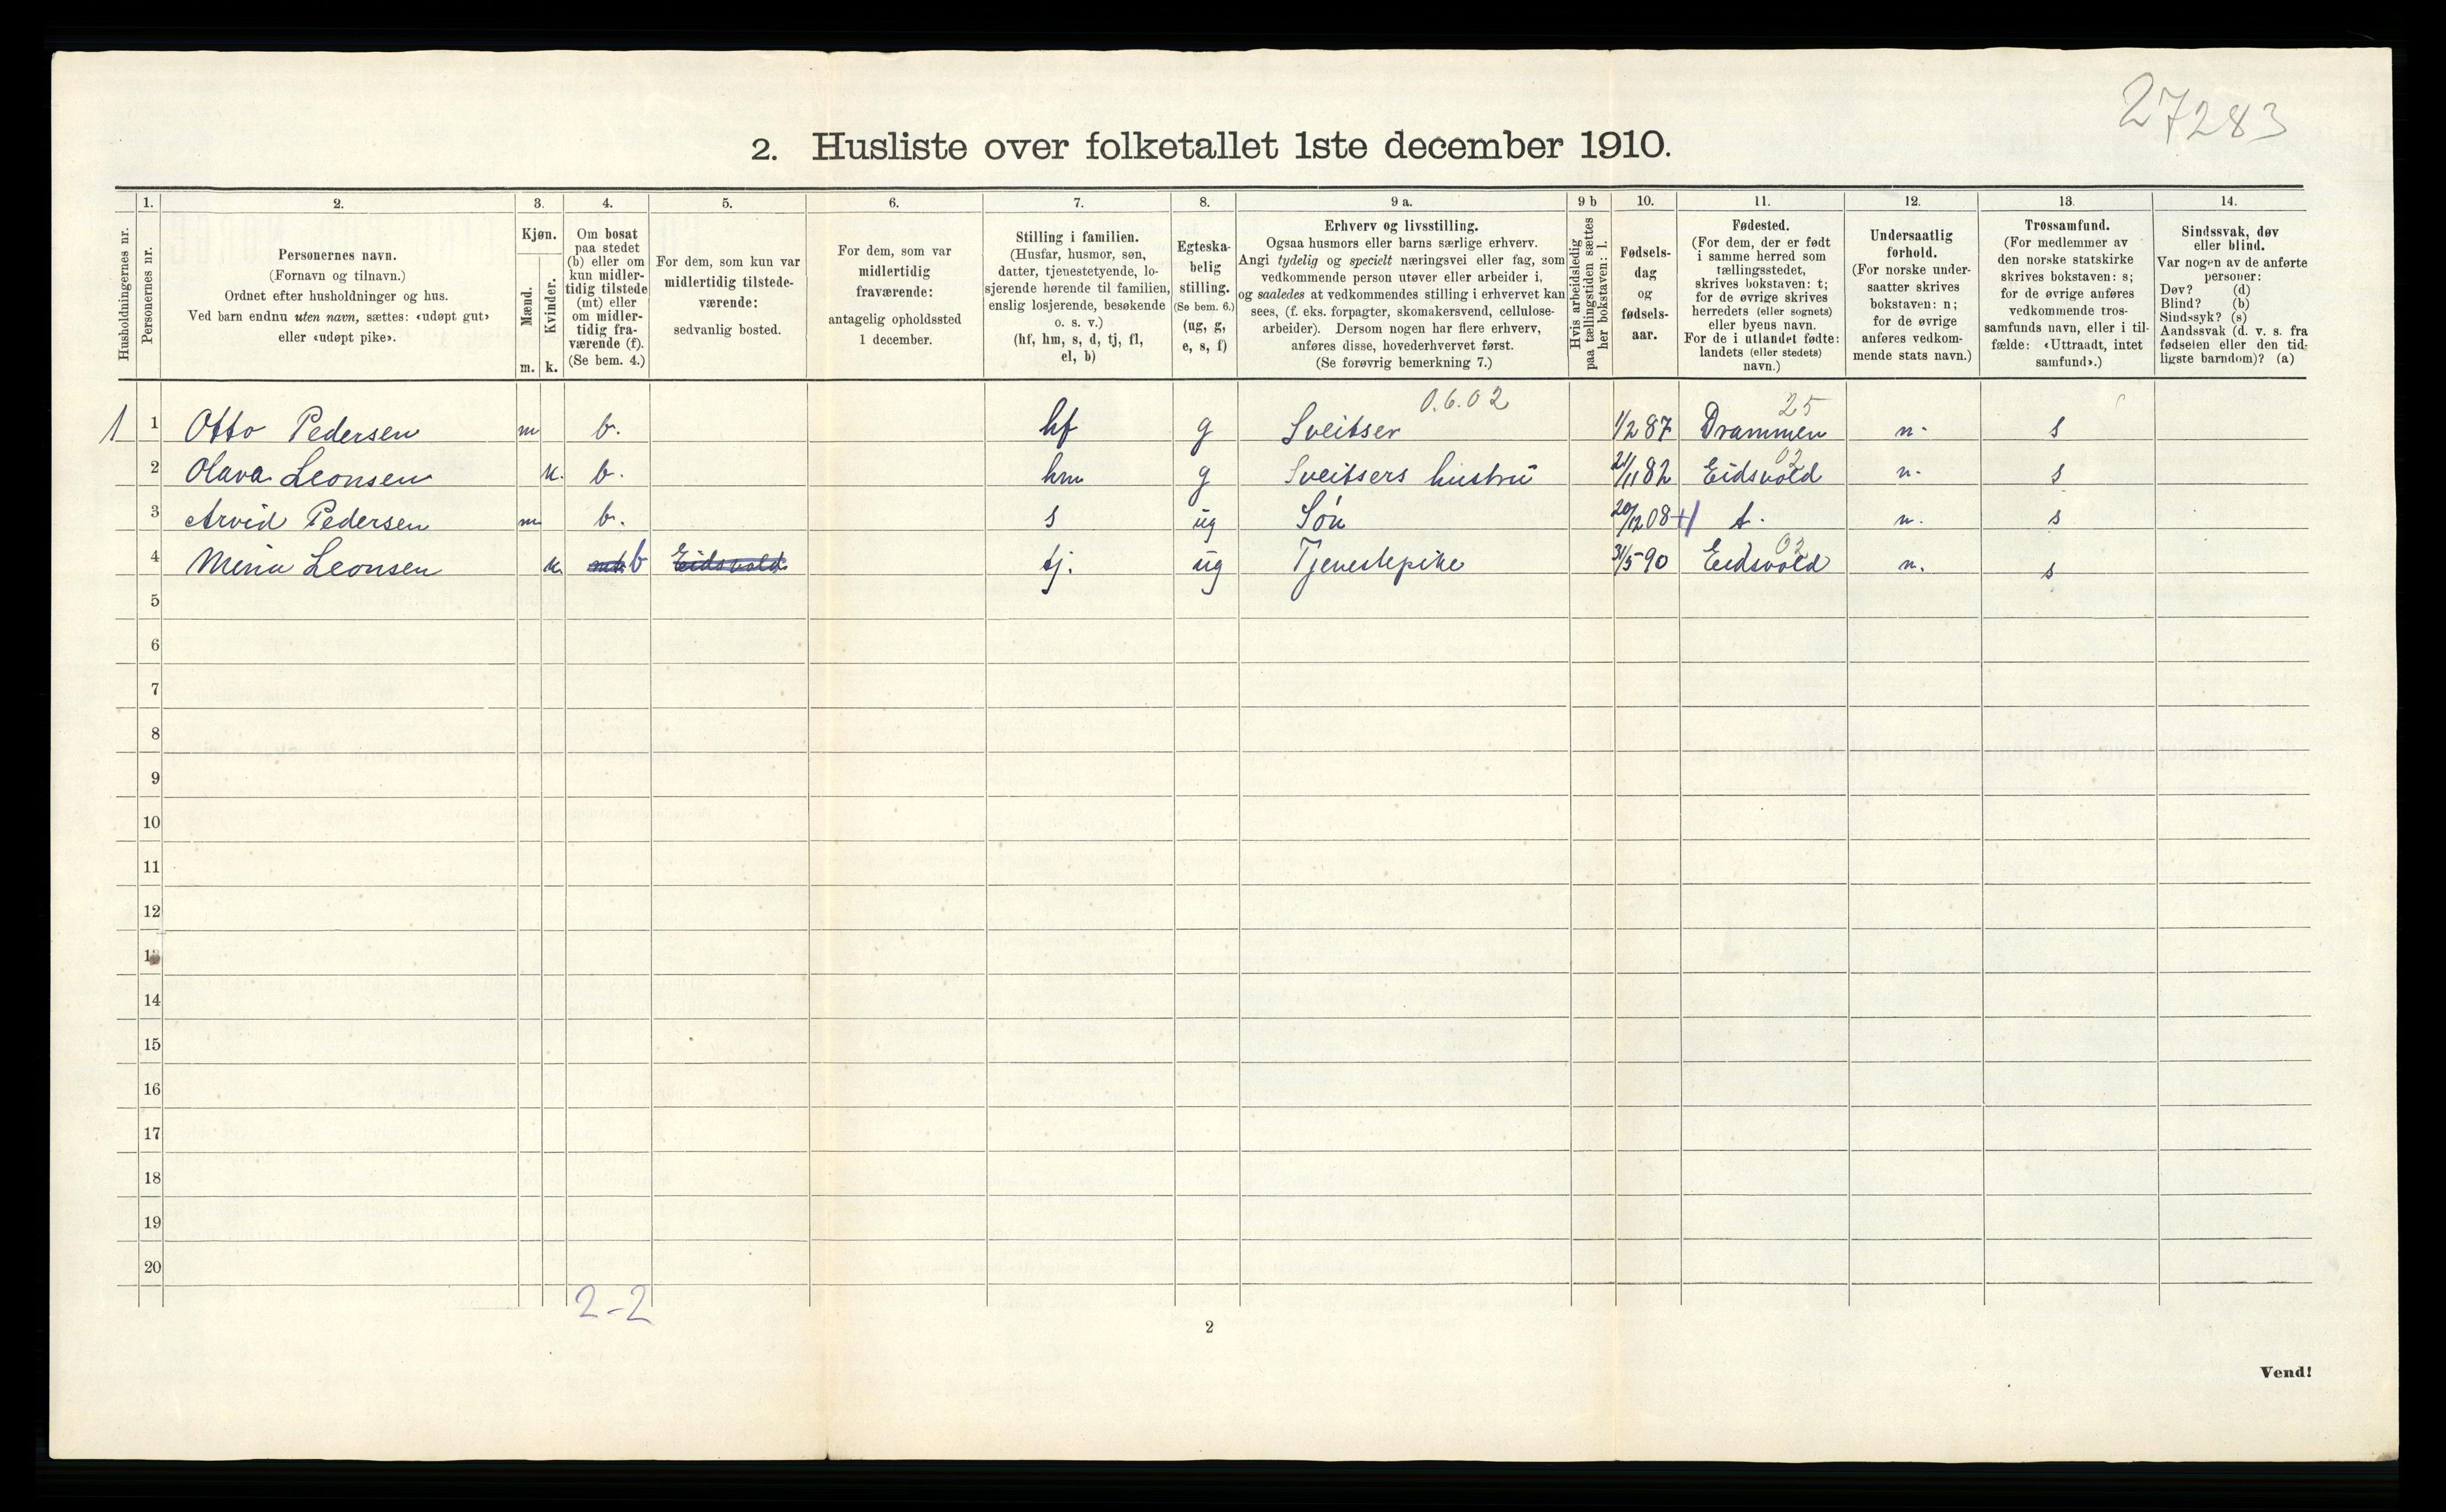 27283
2. Husliste over folketallet 1ste december 1910.
Husholdningernes nr.
1.
Personernes nr.
2.
Personernes navn.
(Fornavn og tilnavn.)
Ordnet efter husholdninger og hus.
Ved barn endnu uten navn, sættes: «udøpt gut»
eller «udøpt pike».
3.
Kjøn.
Mænd.
Kvinder.
m. k.
4.
Om bosat
paa stedet
(b) eller om
kun midler-
tidig tilstede
(mt) eller
om midler-
tidig fra-
værende (f).
(Se bem. 4.)
5.
For dem, som kun var
midlertidig tilstede-
værende:
sedvanlig bosted.
6.
For dem, som var
midlertidig
fraværende:
antagelig opholdssted
1 december.
7.
Stilling i familien.
(Husfar, husmor, søn,
datter, tjenestetyende, lo-
sjerende hørende til familien,
enslig losjerende, besøkende
o. s. v.)
(hf, hm, s, d, tj, fl,
el, b)
8.
Egteska-
belig
stilling.
(Se bem. 6.)
(ug, g,
e, s, f)
9 a.
Erhverv og livsstilling.
Ogsaa husmors eller barns særlige erhverv.
Angi tydelig og specielt næringsvei eller fag, som
vedkommende person utøver eller arbeider i,
og saaledes at vedkommendes stilling i erhvervet kan
sees, (f. eks. forpagter, skomakersvend, cellulose-
arbeider). Dersom nogen har flere erhverv,
anføres disse, hovederhvervet først.
(Se forøvrig bemerkning 7.)
9 b
Hvis arbeidsledig
paa tællingstiden sættes
her bokstaven: l.
10.
Fødsels-
dag
og
fødsels-
aar.
11.
Fødested.
(For dem, der er født
i samme herred som
tællingsstedet,
skrives bokstaven: t;
for de øvrige skrives
herredets (eller sognets)
eller byens navn.
For de i utlandet fødte:
landets (eller stedets)
navn.)
12.
Undersaatlig
forhold.
(For norske under-
saatter skrives
bokstaven: n;
for de øvrige
anføres vedkom-
mende stats navn.)
13.
Trossamfund.
(For medlemmer av
den norske statskirke
skrives bokstaven: s;
for de øvrige anføres
vedkommende tros-
samfunds navn, eller i til-
fælde: «Uttraadt, intet
samfund».)
14.
Sindssvak, døv
eller blind.
Var nogen av de anførte
personer:
Døv? (d)
Blind? (b)
Sindssyk? (s)
Aandssvak (d. v. s. fra
fødselen eller den tid-
ligste barndom)? (a)
0.6.02 25
1 1 Otto Pedersen m b. hf g Sveitser 1/2 87 Drammen n. s
02
2 Olava Leonsen k. b. hm g Sveitsers hustru 21/11 82 Eidsvold n. s
3 Arvid Pedersen m b. s ug Søn 20/12 08 t. n. s
02
4 Mina Leonsen k mt b Eidsvold tj. ug Tjenestepike 31/5 90 Eidsvold n. s
5
6
7
8
9
10
11
12
13
14
15
16
17
18
19
20
2-2
2
Vend!